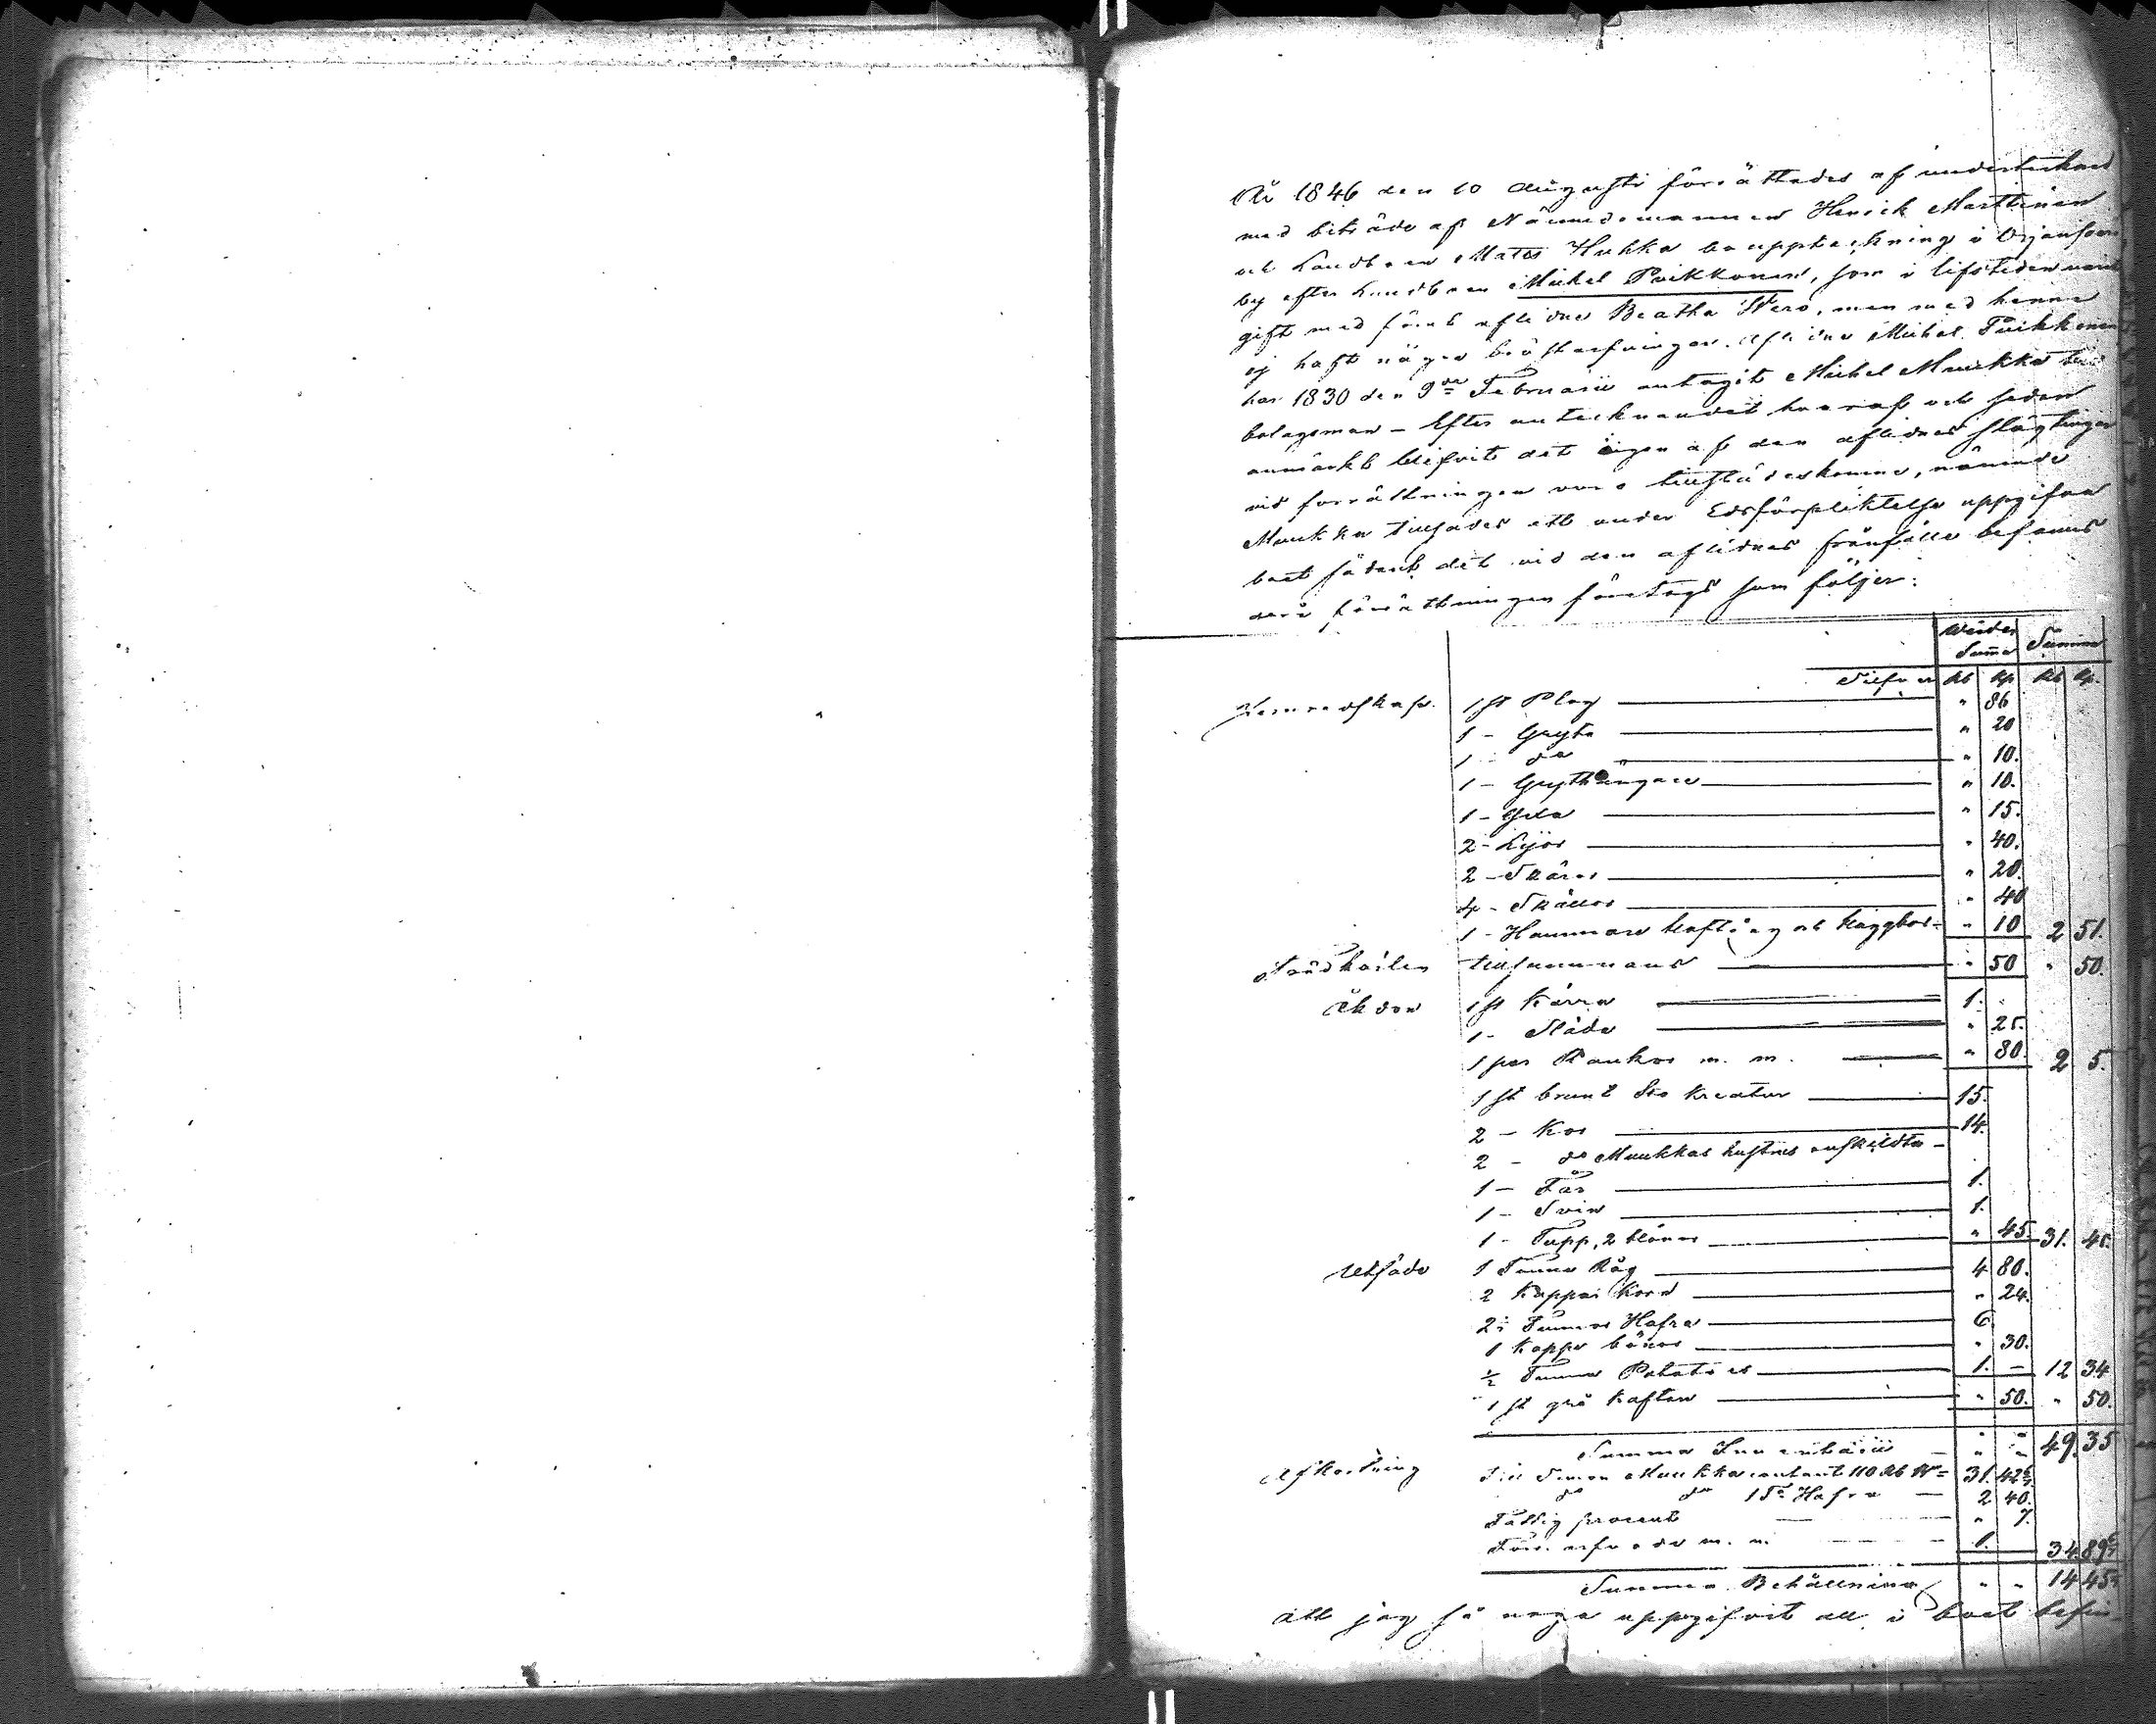 År 1846 den 10 Augusti förrättades af undertecknad
med biträde af Nämndemannen Henrick Marttinen
och Landboen Mats Hukka bouppteckning i
by efter Landboen Michel Poikkonen, som i lifstiden varit
gift med förut aflidne Beatha Wero, men med henne
ej haft några bröstarfvingar. Aflidne Michel Poikkonen
har 1830 den 9de Februarii antagit Michel Muukka till
bolagsman – Efter antecknandet häraf och sedan
anmärkt blifvit det ingen af den aflidnes slägtingar
vid förrättningen voro tillstädeskomne, nämnde
Muukka tillsades att under Edsförpliktelse uppgifva
boet sådant det vid den aflidnes frånfälle befanns
då förrättningen företogs som följer:
Värdes Summa Summa
Silfver Rb Kp Rb Kp.
Jernredskap. 1 st Plog " 86
1 - Gryta " 20
1 - do " 10.
1 - Grythängare " 10.
1 - Yxa " 15.
2 - Lijor " 40.
2 - Skäror " 20.
4 - Skällor " 40
1 - Hammare och " 10 2 51.
Trädkärlen tillsammans " 50 " 50.
Åkdon 1 st Kärra 1. -
1 - Släda " 25.
1 par Rankor m. m. " 80. 2 5.
1 st brunt Sto kreatur 15.
2 - Kor 14.
2 - do Muukkas hustrus enskildta -
1 - Får 1.
1 - Svin 1.
1 - Tupp, 2 Hönor " 45. 31. 45.
Utsäde 1 Tunna Råg 4 80.
2 Kappar Korn " 24.
2½ Tunnor Hafra 6
1 Kappe bönor " 30.
½ Tunna Potatoes 1. - 12 34
1 st grå Kaftan " 50. " 50.
Summa Inventarii " " 49.35
Afkortning Till Simon Muukka contant 110 Rb 31. 42 6/7
do do 1 Ta Hafra 2 40.
Fattig procent " 7.
m. m. 1. 34.89 6/7
Summa Behållning " " 14 45
Att jag så noga uppgifvit allt i boet befin-